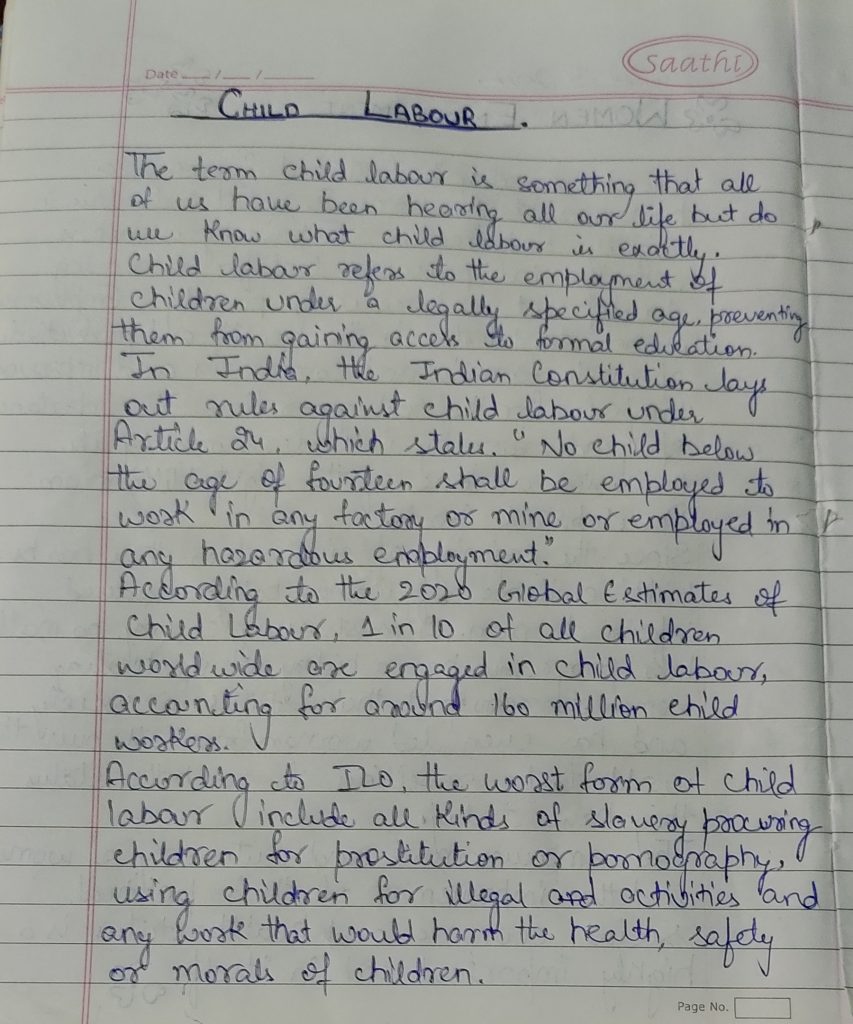 Saathi
Date __/__/____
CHILD LABOUR.
The term child labour is something that all
of us have been hearing all our life but do
we know what child labour is exactly.
Child labour refers to the employment of
children under a legally specified age, preventing
them from gaining access to formal education.
In India, the Indian Constitution lays
out rules against child labour under
Article 24, which states. "No child below
the age of fourteen shall be employed to
work in any factory or mine or employed in
any hazardous employment."
According to the 2020 Global Estimates of
Child Labour, 1 in 10 of all children
worldwide are engaged in child labour,
accounting for around 160 million child
workers.
According to ILO, the worst form of child
labour include all kinds of slavery procuring
children for prostitution or pornography,
using children for illegal and activities and
any work that would harm the health, safety
or morals of children.
Page No.